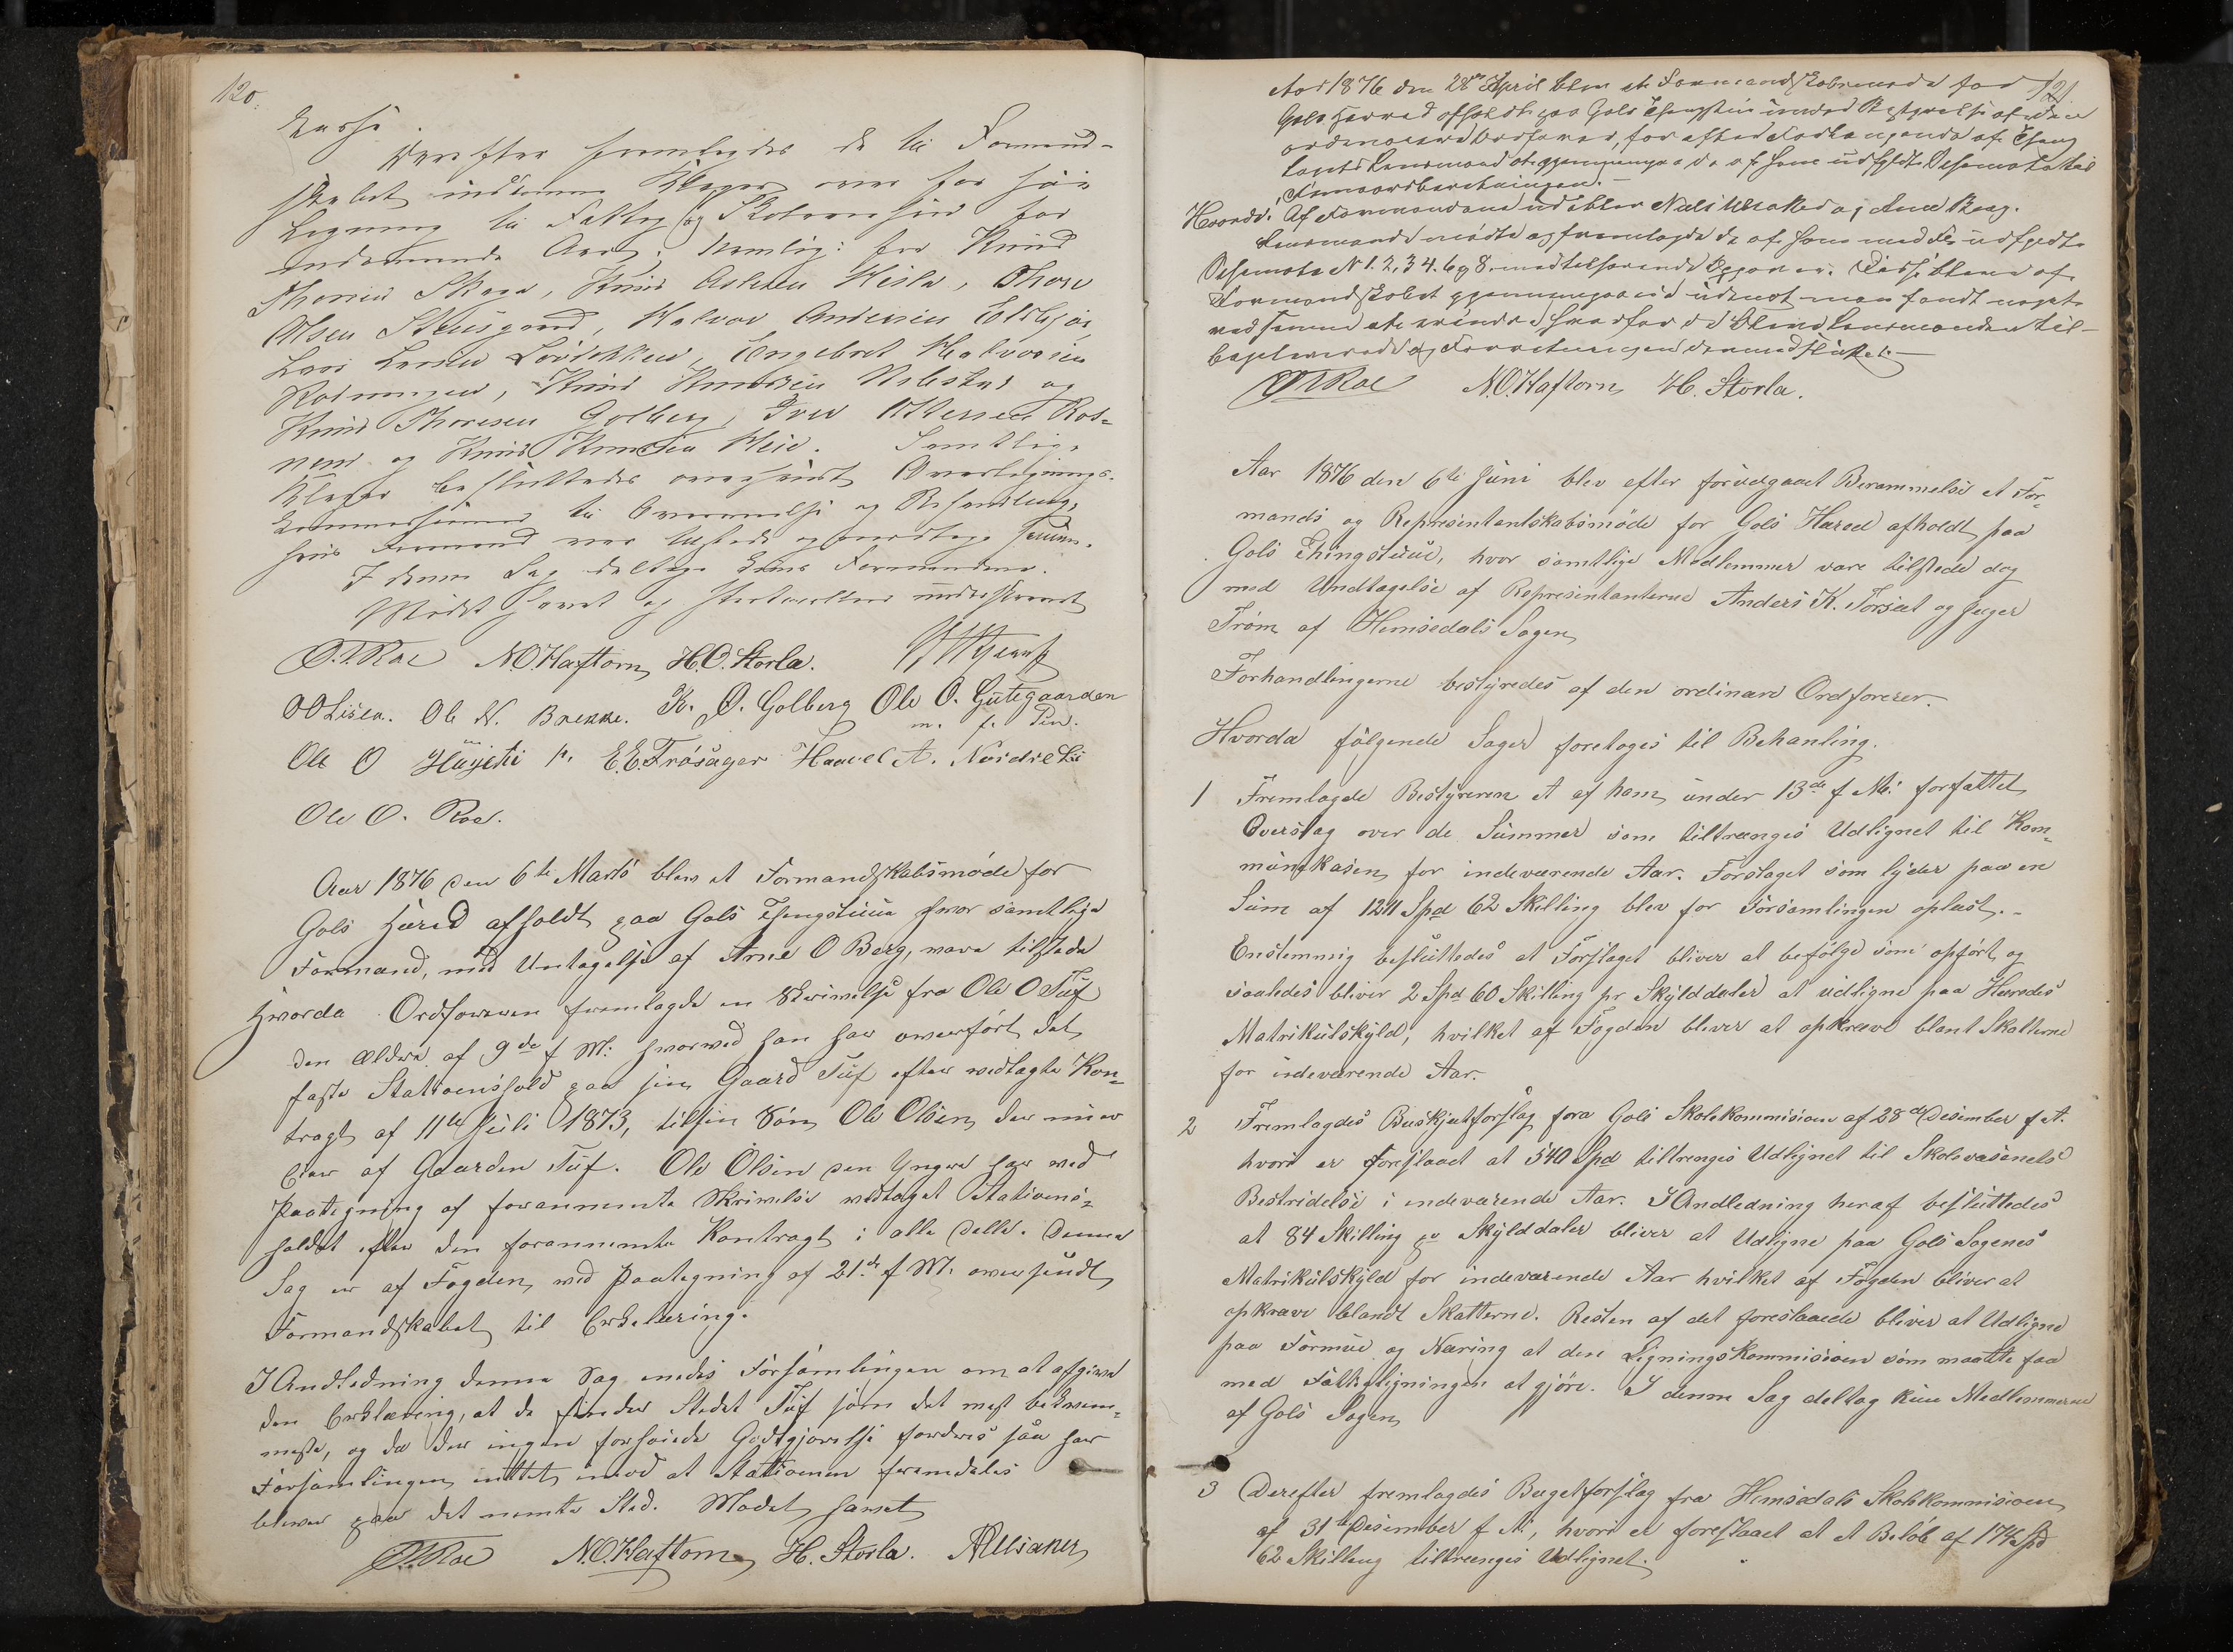 120.
Kasse.
Derefter fremlagdes de til Formand-
skabet indkomne Klager over for høi
Ligning til Fattig og Skolevæsen for
indeværende Aar, nemlig: fra Knud
Thoresen Skaga, Knud Asle Hesla, Thore
Olsen Steusgaard, Halvor Andersen Eldbjør
Lars Larsen Løvdokken, Engebret Halvorsen
Rotneim, Knud Knudsen og
Knud Thoresen Golberg, Iver Rot=
nem og Knud Knudsen Heie. Samtlige
Klager besluttedes oversendt Overlignings-
kommissionen til Overveielse og Behandling,
hvis Formand var tilstede og modtog samme.
I denne Sag deltog kuns Formændene.
Mødet hævet og Protocollen underskrevet
O.T. Roe N.O. Haftorn H.O. Storla.
O O Lisen. Ole N. Brekke. K. O. Golberg Ole O. Gutegaarden
m. f. Pen.
Ole O Huyeti E.E. Frøsager Haavel A. Nordre Li
Ole O. Roe.
Aar 1876 den 6te Marts blev et Formandskabsmøde for
Gols Hered afholdt paa Gols Thingstuue hvor samtlige
Formænd, med Untagelse af Arne O Berg, vare tilstede
Hvorda Ordføreren fremlagde en Skrivelse fra Ole O Tuf
den ældre af 9de f M: hvorved han har overført det
faste Stationshold paa sin Gaard Tuf efter vedtagte Kon=
tragt af 11te Juli 1873, til sin Søn Ole Olsen, der nu er
Eier af Gaarden Tuf. Ole Olsen den Yngre har ved
Paategning af forannemte Skrivelse vedtaget Stations=
holdet efter den forannemte Kontragt i alle Delle. Denne
Sag er af Fogden, ved Paategning af 21de f M. oversendt
Formandskabet til Erklæring.
I Andledning denne Sag enedes Forsamlingen om at afgive
den Erklæring, at de finder Stedet Tuf som det mest bekvem=
meste, og da der ingen forhøiede Godtgjørelse fordres saa har
Forsamlingen inttet imod at Stationen fremdeles
bliver paa det nemte Sted. Mødet hævet
O.T. Roe N.O. Haftorn H. Storla. A Ulsaker
121
Aar 1876 den 28de April blev et Formandskabsmøde for
Gols Herred afholdt paa Gols Thingstue under Bestyrelse af den
ordinære Ordfører, for efter Forlangende af Thing
lagets Lensmand at gjennemgaa de af ham udfyldte Schemata til
Femaarsberetningen.—
Hvorda: Af Formændene udeblev Niels Ulsaker og Arne Berg.
Lensmanden mødte og fremlagde de af ham med Flid udfyldte
Schemata N 1. 2, 3 4. 6 og 8. Disse bleve af
Formandskabet gjennemgaaede uden at man fandt noget
ved samme at erindre hvorfor de bleve Lensmanden til-
bageleverede og Forretningen dermed sluttet.—
O.T. Roe N.O. Haftorn H. Storla.
Aar 1876 den 6te Juni blev efter forudgaaet Berammelse et For=
mands og Representantskabsmøde for Gols Hered afholdt paa
Gols Thingstuue, hvor samtlige Medlemmer vare tilstede dog
med Undtagelse af Representanterne Anders K. Torset og Jeger
Trøm af Hemsedals Sogen
Forhandlingerne bestyredes af den ordinære Ordforerer.
Hvorda følgende Sager foretoges til Behanling.
1 Fremlagde Bestyreren et af ham under 13de f M: forfattet
Overslag over de Summer som tiltrænges Udlignet til Kom=
munekasen for indeværende Aar. Forslaget som lyder paa en
Sum af 1211 Spd 62 Skilling blev for Forsamlingen oplæst.-
Enstemmig besluttedes at Forslaget bliver at befølge som opført og
saaledes bliver 2 Spd 60 Skilling pr Skylddaler at udligne paa Heredes
Matrikulskyld, hvilket af Fogden bliver at opkræve blant Skatterne
for indeværende Aar.
2 Fremlagdes Buskjetforslag fora Gols Skolekommision af 28de Desember f A.
hvori er foreslaaet at 540 Spd tiltrenges Udlignet til Skolevæsenets
Bestridelse i indeværende Aar. I Andledning heraf besluttedes
at 84 Skilling pr Skylddaler bliver at Udligne paa Gols Sogenes
Matrikulskyld for indeværende Aar hvilket af Fogden bliver at
opkræve blandt Skatterne. Resten af det foreslaaede bliver at Udligne
paa Formue og Næring at den Ligningskommision som maatte faa
med Fattigligningen at gjøre. I denne Sag deltog kun Medlemmerne
af Gols Sogen
3 Derefter fremlagdes Bugetforslag fra Hemsedals Skolekommision
af 31te Desember f A:, hvori er foreslaaet at et Beløb af 174 Spd
62 Skilling tiltrænges Udlignet.